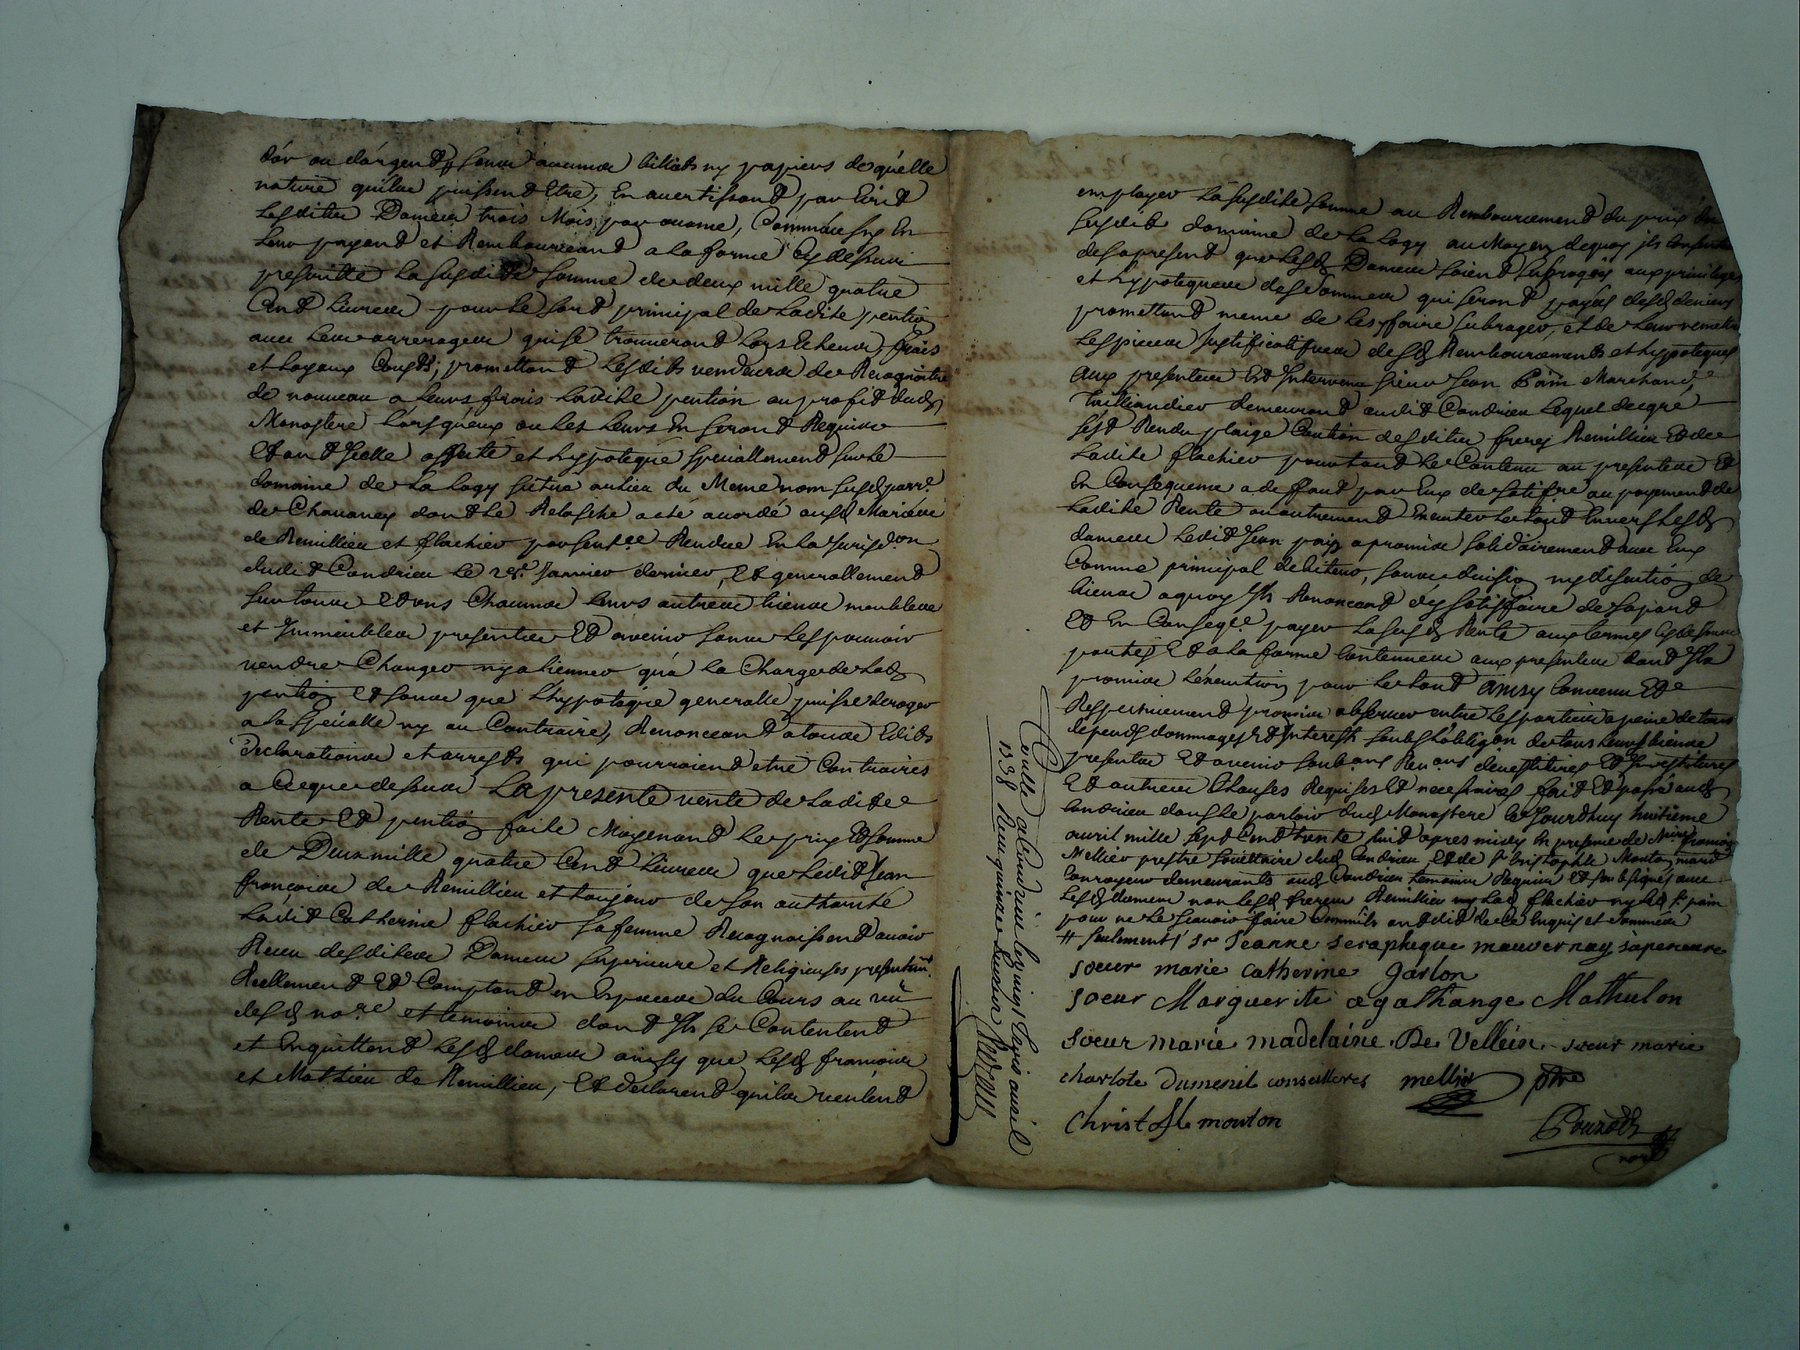 d'or ou d'argent sans aucune billiets ny papiers de quelle
nature quilse puissent Etre, En avertissant par Ecrit
Lesdittes Dames trois Mois par avance, Comme aussy En
Leur payant et Remboursant a la forme Cy dessus
prescritte la susditte somme de deux mille quatre
Cent Livres pour le sort principal de Ladite pention
avec Les arrerages qui se trouveront Lors Echeus, frais
et Loyaux Cousts, promettant Lesdits vendeurs de Recognoitre
de nouveau a leurs frais Ladite pention au profit dud
Monastere Lorsqu'eux ou les Leurs En seront Requis
Etant Icelle affecté et hypotequé speciallement sur le
domaine de La Logy situé au lieu du Meme nom susd parr.e
de Chavaney dont le Relasche a été acordé aud Mariés
de Remillieu et flachier par sent.ce Rendue En la Jurisd.on
dudit Condrieu le 28.e Janvier dernier, Et generallement
sur tous Et uns Chacuns leurs autres biens meubles
et Immeubles presents Et avenir sans Les pouvoir
vendre Changer ny aliener qu'a la Charge de Lad
pention Et sans que L'hypoteque generalle puisse deroger
a la speciale ny au Contraire, Renonceant a tous Edits
declarations et arrests qui pourroient etre Contraires
a Ce que dessus La presente vente de Ladite
Rente Et pention faite Moyenant le prix Et somme
de Deux mille quatre Cent Livres que Ledit Jean
françois de Remillieu et toujour de son authorité
Ladit Catherine flachier sa femme Recognoissent avoir
Receu desdites Dames superieure et Religieuses presentem.t
Reellement Et Comptant en Especes du Cours au veu
desd no.re et temoins dont Ils se Contentent
et En quittent Lesd dames ainsy que Lesd francois
et Mathieu de Remillieu, Et declarent quils veulent
employer La susdite somme au Remboursement du prix du
susdit domaine de La Logy au Moyen dequoy ils Consentent
des a present que Lesd Dames soient subrogées aux privileges
et hypoteques des sommes qui seront payés desd deniers
promettant meme de Les y faire subroger, et de Leur remettre
Les pieces Justificatives desd Remboursements et hypoteques
Aux presentes Est Intervenu sieur Jean Pain Marchand
Taillandier demeurant audit Condrieu Lequel de gré
s'est Rendu plaige Caution desdites freres Remillieu Et de
Ladite flachier pour tout le Contenu au presentes Et
En Consequence a deffaut par Eux de satisfre au payement de
Ladite Rente ou autrement Enuers Lesd
dames Ledit Jean pain a promis solidairement avec Eux
Comme principal debiteur, sans division ny discution de
biens a quoy Ils Renoncent d'y satisffaire de sa part
Et En Conseq.ce payer La susd Rente aux termes cy dessus
portés Et a la forme Contenues aux presentes dont Ils
promis L'execution pour le tout Ainsy Convenu Et
Respectivement promis observer entre Les parties a peine de tous
depends dommages Et Interests soubs L'obligaõn de tous Leurs biens
presents Et avenir Et Investitures
Et autres Clauses Requises Et necessaires fait Et passé aud
Condrieu dans Le parloir dud Monastere Ce Jourdhuy huitieme
avril mille sept Cent trente huit apres midy En presence de M.re francois
Mellier prestre societaire dud Condrieu Et de s.r Cristophle Mouton mard
Conroyeur demeurants aud Condrieu temoins Requis Et soubsignés avec
Lesd dames non Lesd freres Remillieu ny Lad flachier ny led s.r pain
pour ne le scavoir faire Comm'ils ont dit de Ce Enquis et sommés
# seulement / sr Jeanne seraphique mauvernay superieure
soeur marie catherine garlon
soeur Marguerite agathange Mathulon
soeur marie madelaine De Vellein soeur marie
charlote Dumenil conseilleres mellier ptre
Christofle mouton
Pouzols
nore
Con.llé a Condrieu le vingt deux avril
1738 Receu quinze